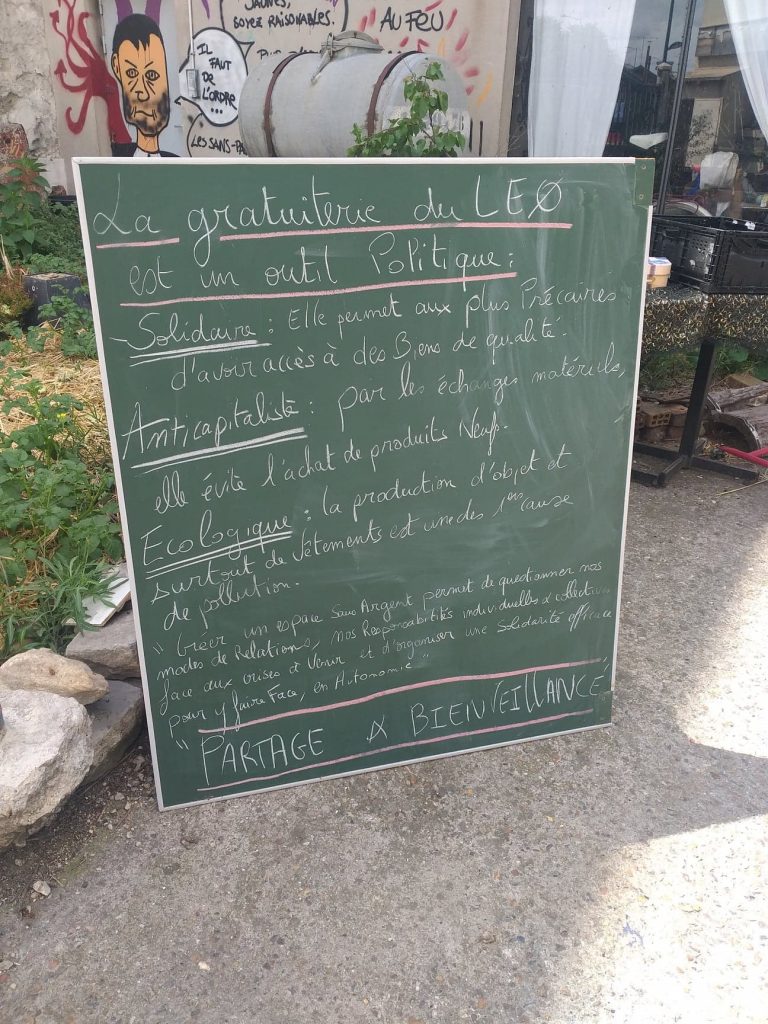 JAUNES,
SOYEZ RAISONABLES.
AU FEU
IL
FAUT
DE
L'ORDRE
...
LES SANS-
La gratuiterie du LEØ
est un outil Politique :
Solidaire : Elle permet aux plus Précaires
d'avoir accès à des Biens de qualité.
Anticapitaliste : par les échanges matériels,
elle évite l'achat de produits Neufs.
Ecologique : la production d'objet et
surtout de Vêtements est une des 1ères cause
de pollution.
" Créer un espace Sans Argent permet de questionner nos
modes de Relations, nos Responsabilités individuelles & collectives
face aux crises à Venir et d'organiser une Solidarité efficace
pour y faire Face, en Autonomie "
" PARTAGE & BIENVEILLANCE